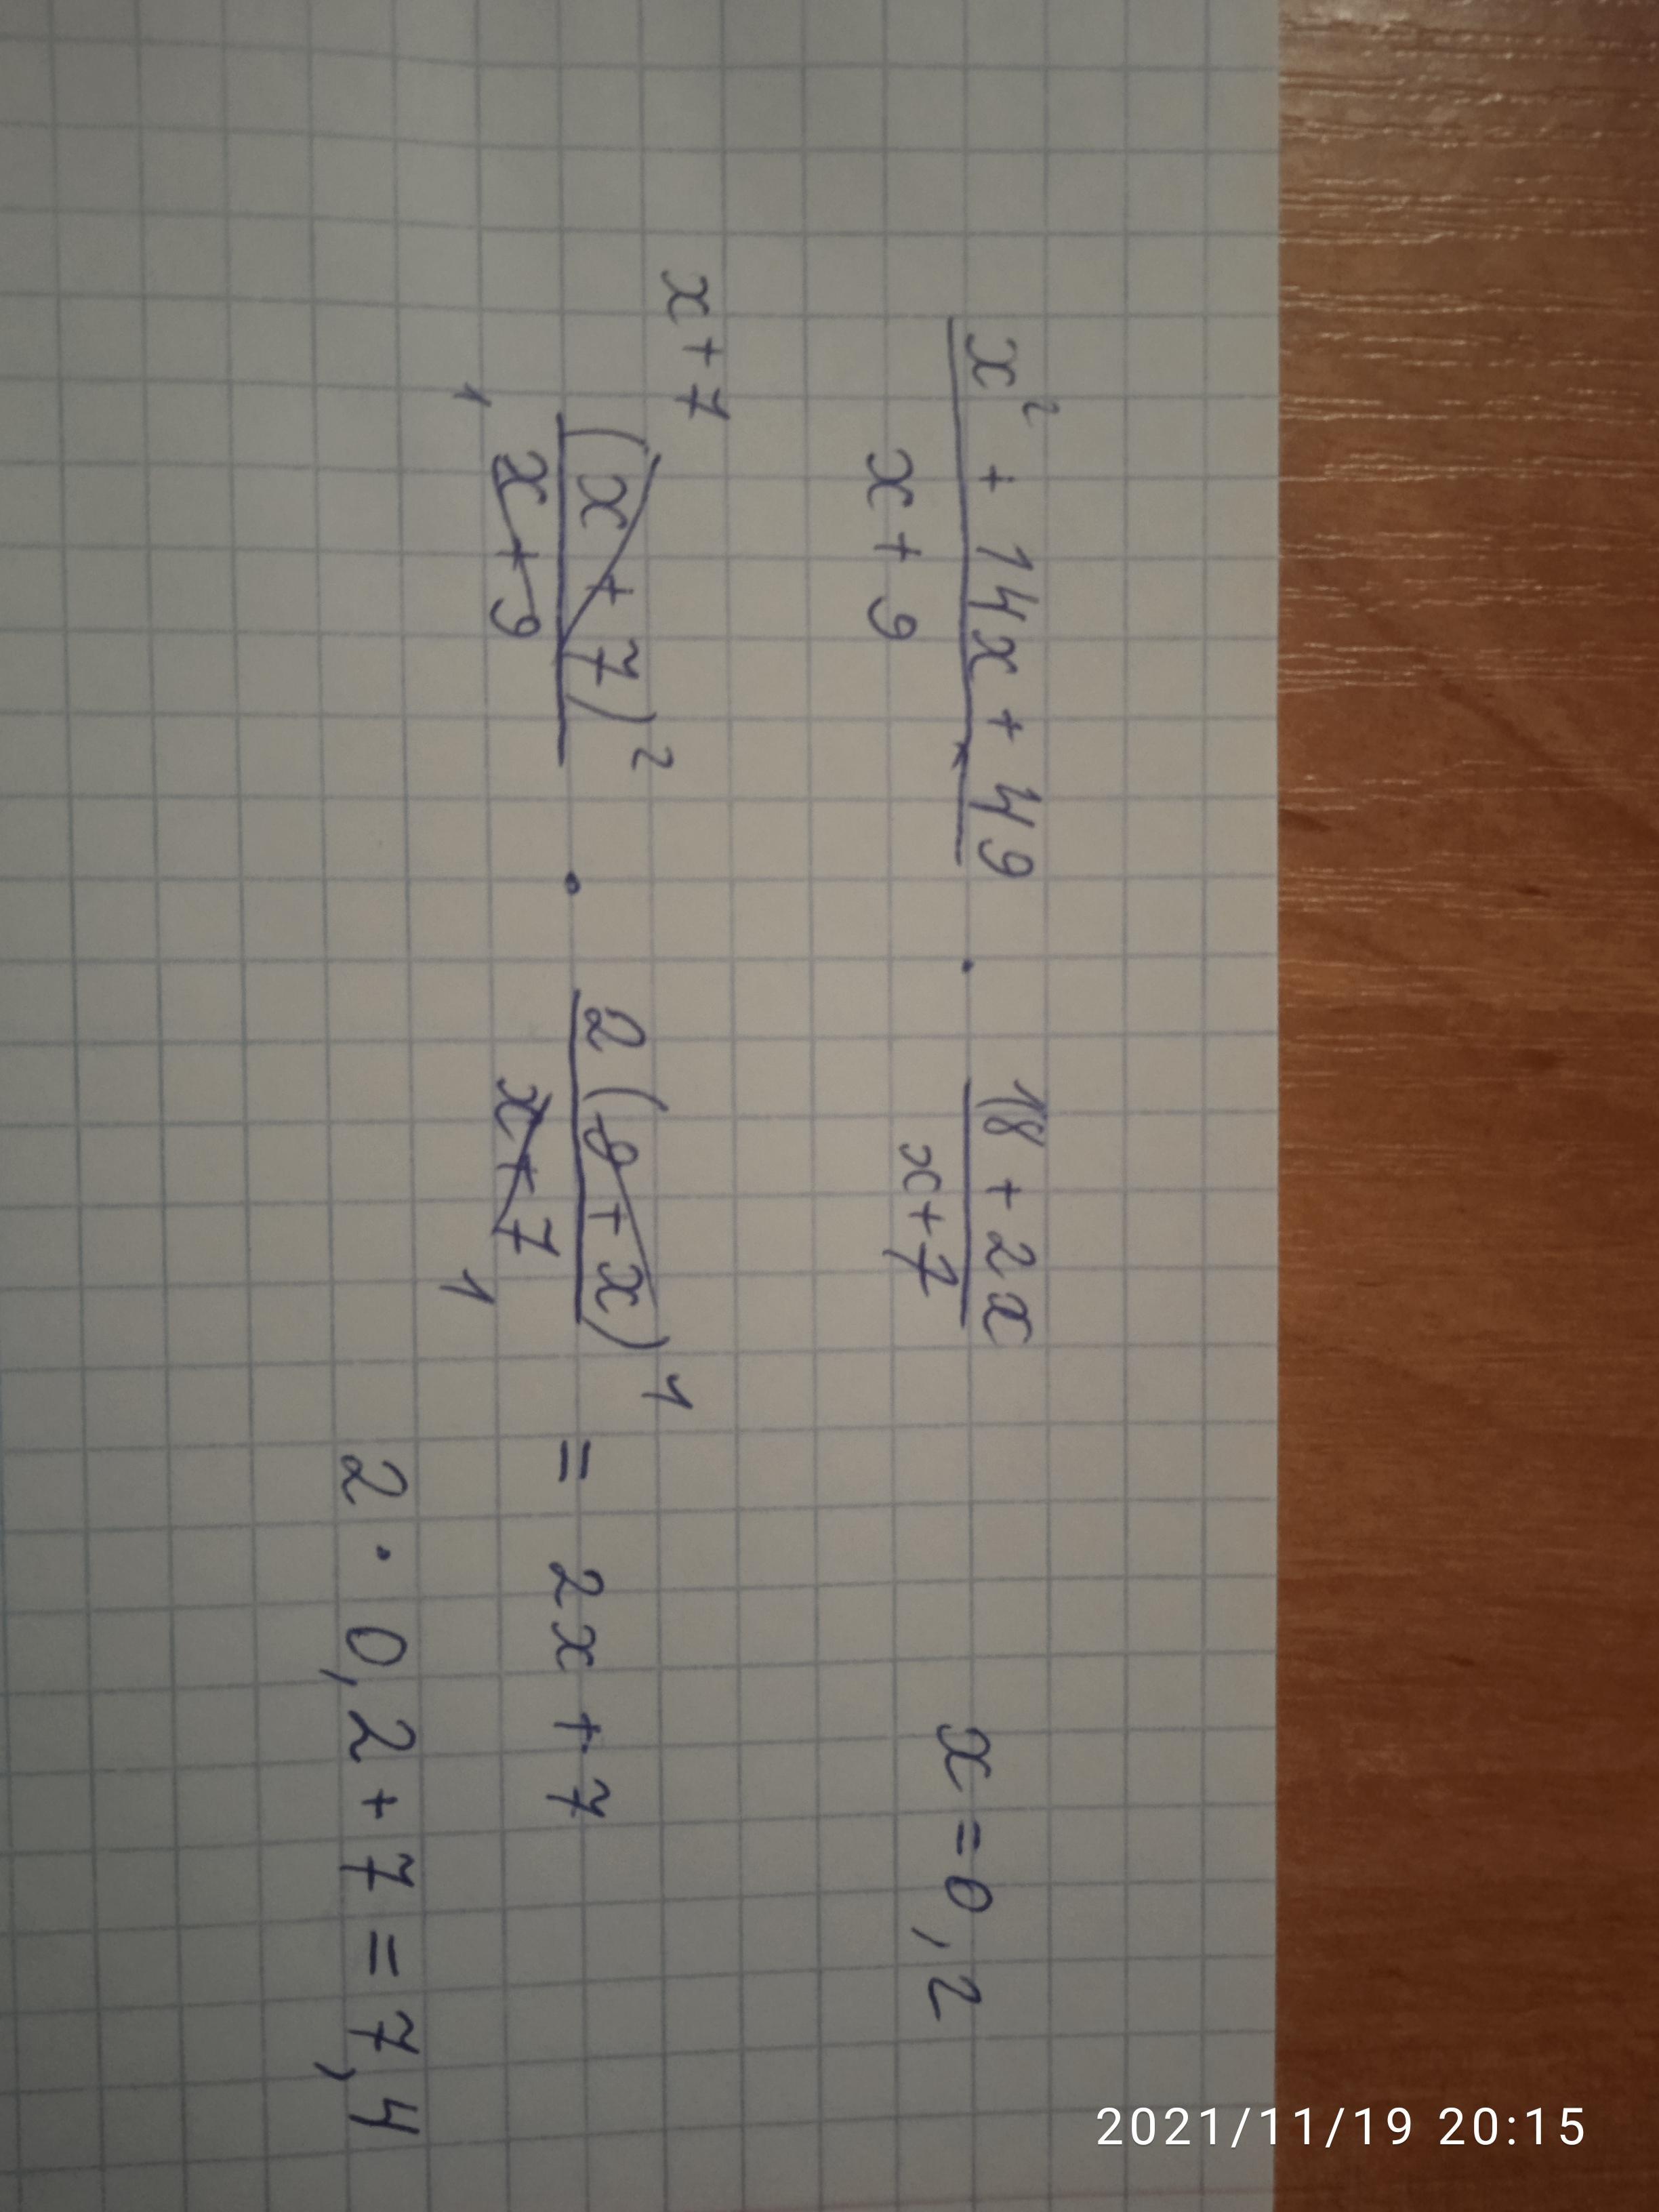 x² + 14x + 49 / x + 9 · 18 + 2x / x + 7 x = 0,2
x + 7 (x + 7)² / x + 9 1 · 2 (9 + x) 1 / x + 7 1 = 2x + 7
2 · 0,2 + 7 = 7,4
2021/11/19 20:15